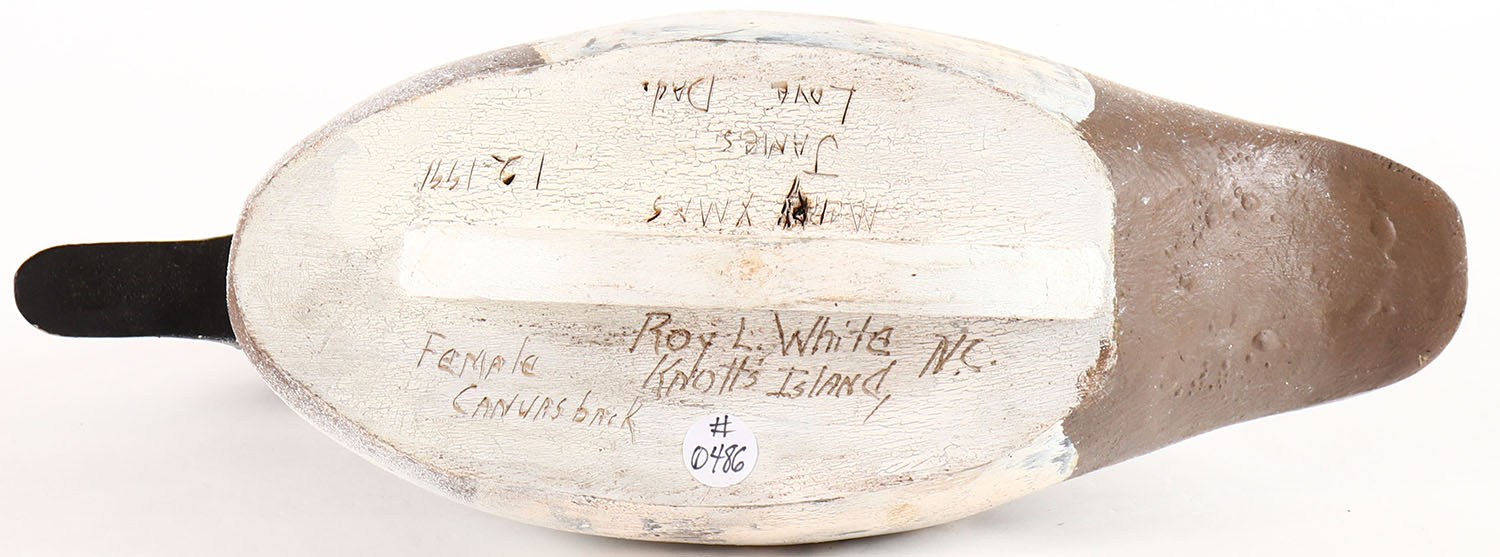 Female
Canvasback
Roy L. White
Knotts Island, N.C.
#
0486
Merry XMAS
JAMES
Love Dad.
12-1991